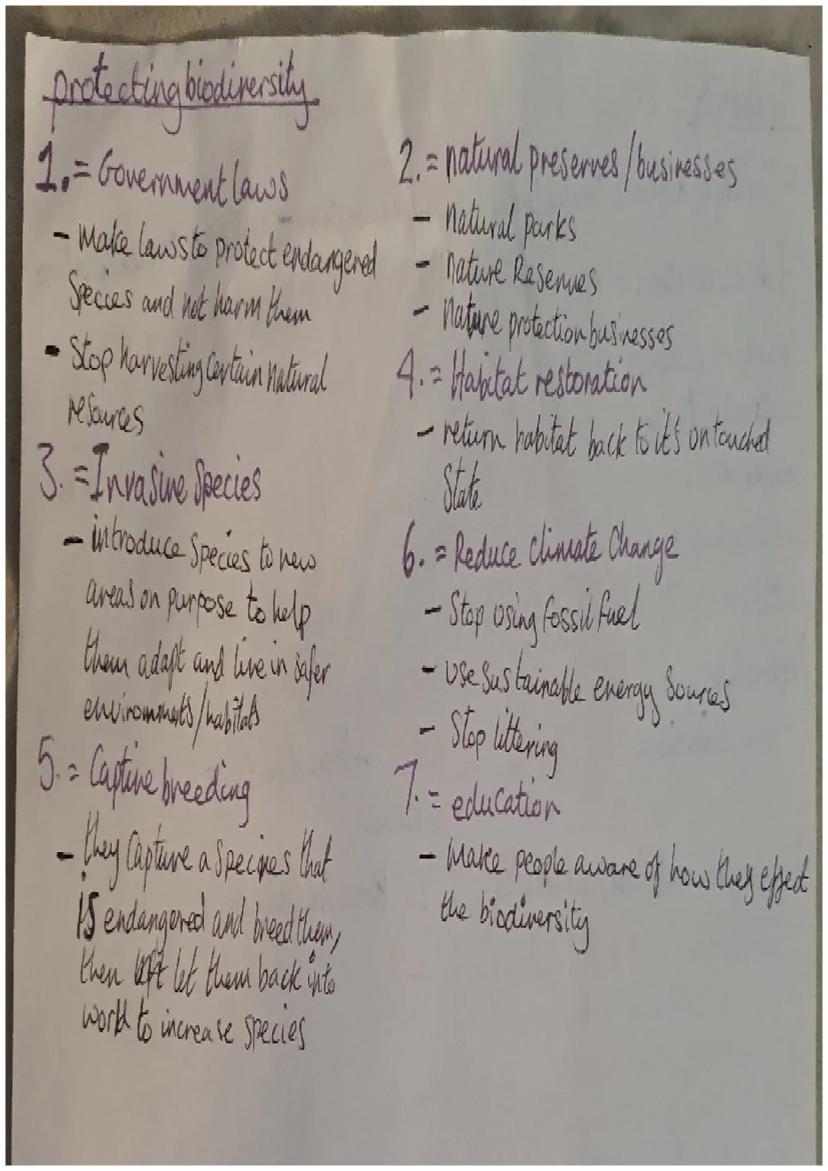 protecting biodiversity
1. = Government laws
- Make laws to protect endangered
Species and not harm them
- Stop harvesting certain natural
resources
2. = natural preserves / businesses
- natural parks
- nature Reserves
- nature protection businesses
3. = Invasive Species
- introduce Species to new
areas on purpose to help
them adapt and live in safer
environments/habitats
4. = Habitat restoration
- return habitat back to it's ontouched
State
5. = Captive breeding
- they capture a specines that
is endangered and breed them,
then let them back into
world to increase species
6. = Reduce climate Change
- Stop using fossil fuel
- use sustainable energy sources
- Stop littering
7. = education
- Make people aware of how they effect
the biodiversity